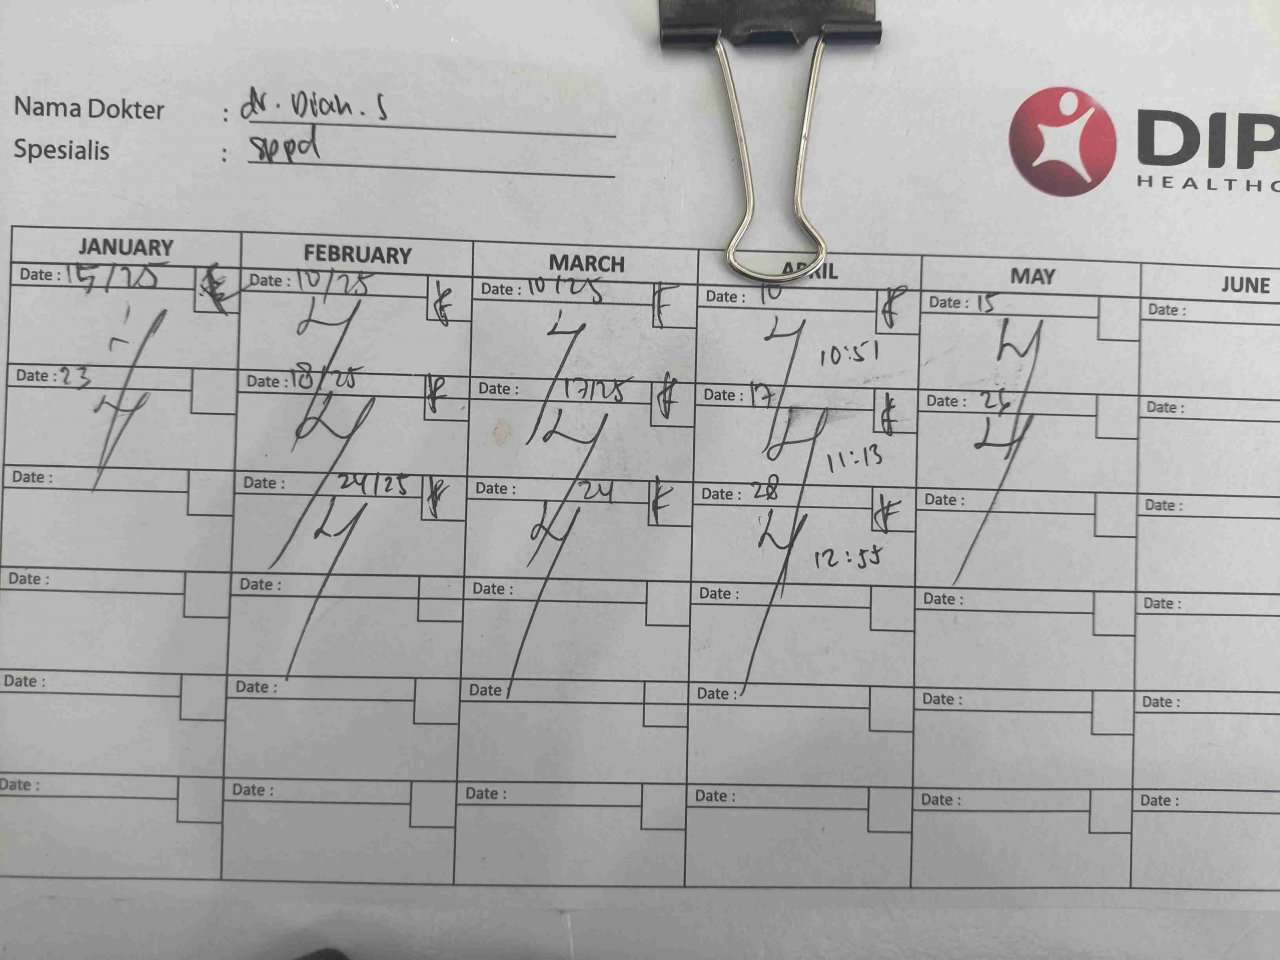 Nama Dokter : dr. Dian. S
Spesialis : sppd
DIP
HEALTHC
JANUARY FEBRUARY MARCH APRIL MAY JUNE
Date : 15/25 Date : 10/25 Date : 10/25 Date : 10 Date : 15 Date :
10:51
Date : 23 Date : 18/25 Date : 17/25 Date : 17 Date : Date :
11:13
Date : Date : 24/25 Date : 24 Date : 28 Date : Date :
12:55
Date : Date : Date : Date : Date : Date :
Date : Date : Date : Date : Date : Date :
Date : Date : Date : Date : Date : Date :